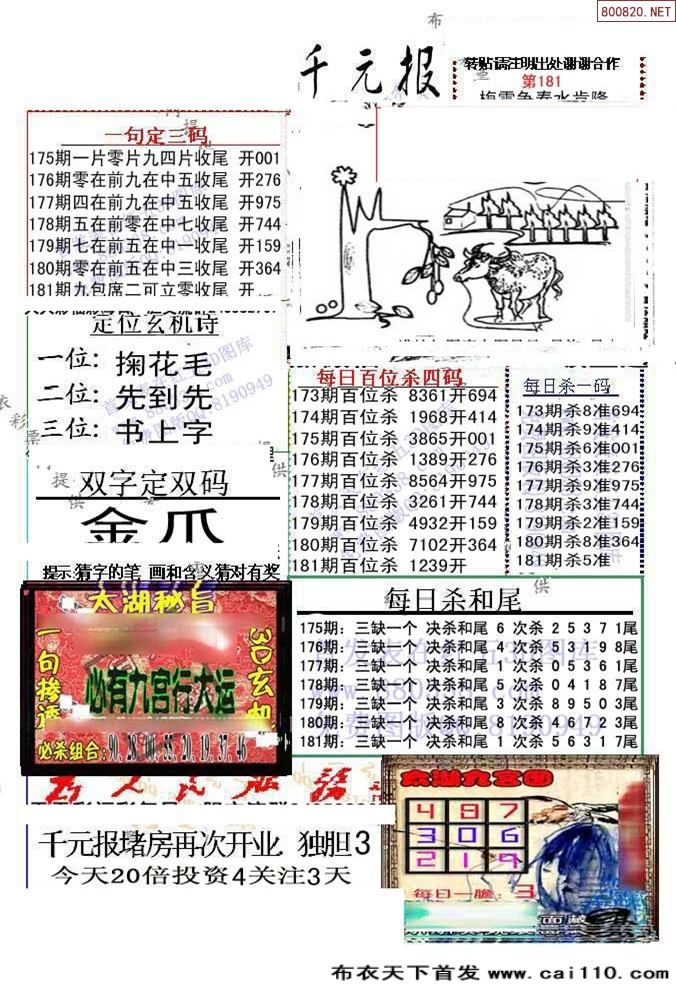 800820.NET
千元报
转贴请注明出处谢谢合作
第181
梅雪争春水肯降
一句定三码
175期一片零片九四片收尾 开001
176期零在前九在中五收尾 开276
177期四在前九在中五收尾 开975
178期五在前零在中七收尾 开744
179期七在前五在中一收尾 开159
180期零在前五在中三收尾 开364
181期九包席二可立零收尾 开
定位玄机诗
一位: 掬花毛
二位: 先到先
三位: 书上字
双字定双码
金爪
提示:猜字的笔 画和含义猜对有奖
每日百位杀四码
173期百位杀 8361开694
174期百位杀 1968开414
175期百位杀 3865开001
176期百位杀 1389开276
177期百位杀 8564开975
178期百位杀 3261开744
179期百位杀 4932开159
180期百位杀 7102开364
181期百位杀 1239开
每日杀一码
173期杀8准694
174期杀9准414
175期杀6准001
176期杀3准276
177期杀9准975
178期杀3准744
179期杀2准159
180期杀8准364
181期杀5准
太湖秘旨
一句掺透
3D玄机
必有九宫行大运
必杀组合:90.28.00.55.20.19.37.46
每日杀和尾
175期: 三缺一个 决杀和尾 6 次杀 2 5 3 7 1尾
176期: 三缺一个 决杀和尾 4 次杀 5 3 7 9 8尾
177期: 三缺一个 决杀和尾 1 次杀 0 5 3 6 1尾
178期: 三缺一个 决杀和尾 5 次杀 0 4 1 8 7尾
179期: 三缺一个 决杀和尾 3 次杀 8 9 5 0 3尾
180期: 三缺一个 决杀和尾 8 次杀 4 6 1 2 3尾
181期: 三缺一个 决杀和尾 1 次杀 5 6 3 1 7尾
千元报堵房再次开业 独胆3
今天20倍投资4关注3天
太湖九宫图
4 8 7
3 0 6
2 1 9
每日一胆: 3
西藏
布衣天下首发 www.cai110.com